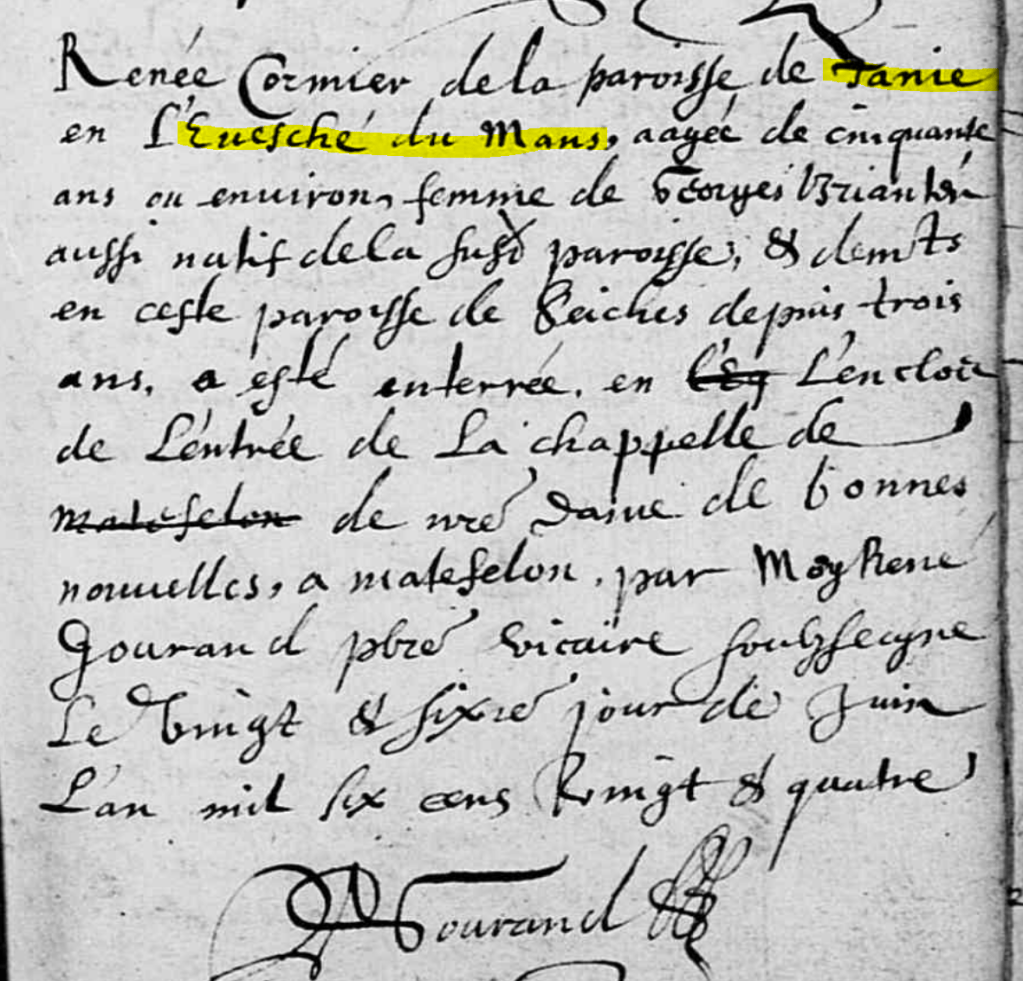 Renée Cormier de la paroisse de Tanie
en L'Euesché du Mans, aagée de cinquante
ans ou enuiron, femme de Georges
aussi natif de la susd paroisse, & demts
en ceste paroisse de Seiches depuis trois
ans, a esté enterrée, en l'Eg L'encloix
de L'entrée de La chappelle de
matefelon de nre Dame de bonnes
nouuelles, a matefelon, par Moy René
Gourand pbre vicaire soubzsegne
Le Vingt & sixie jour de Juin
L'an mil six cens Vingt & quatre
Gourand